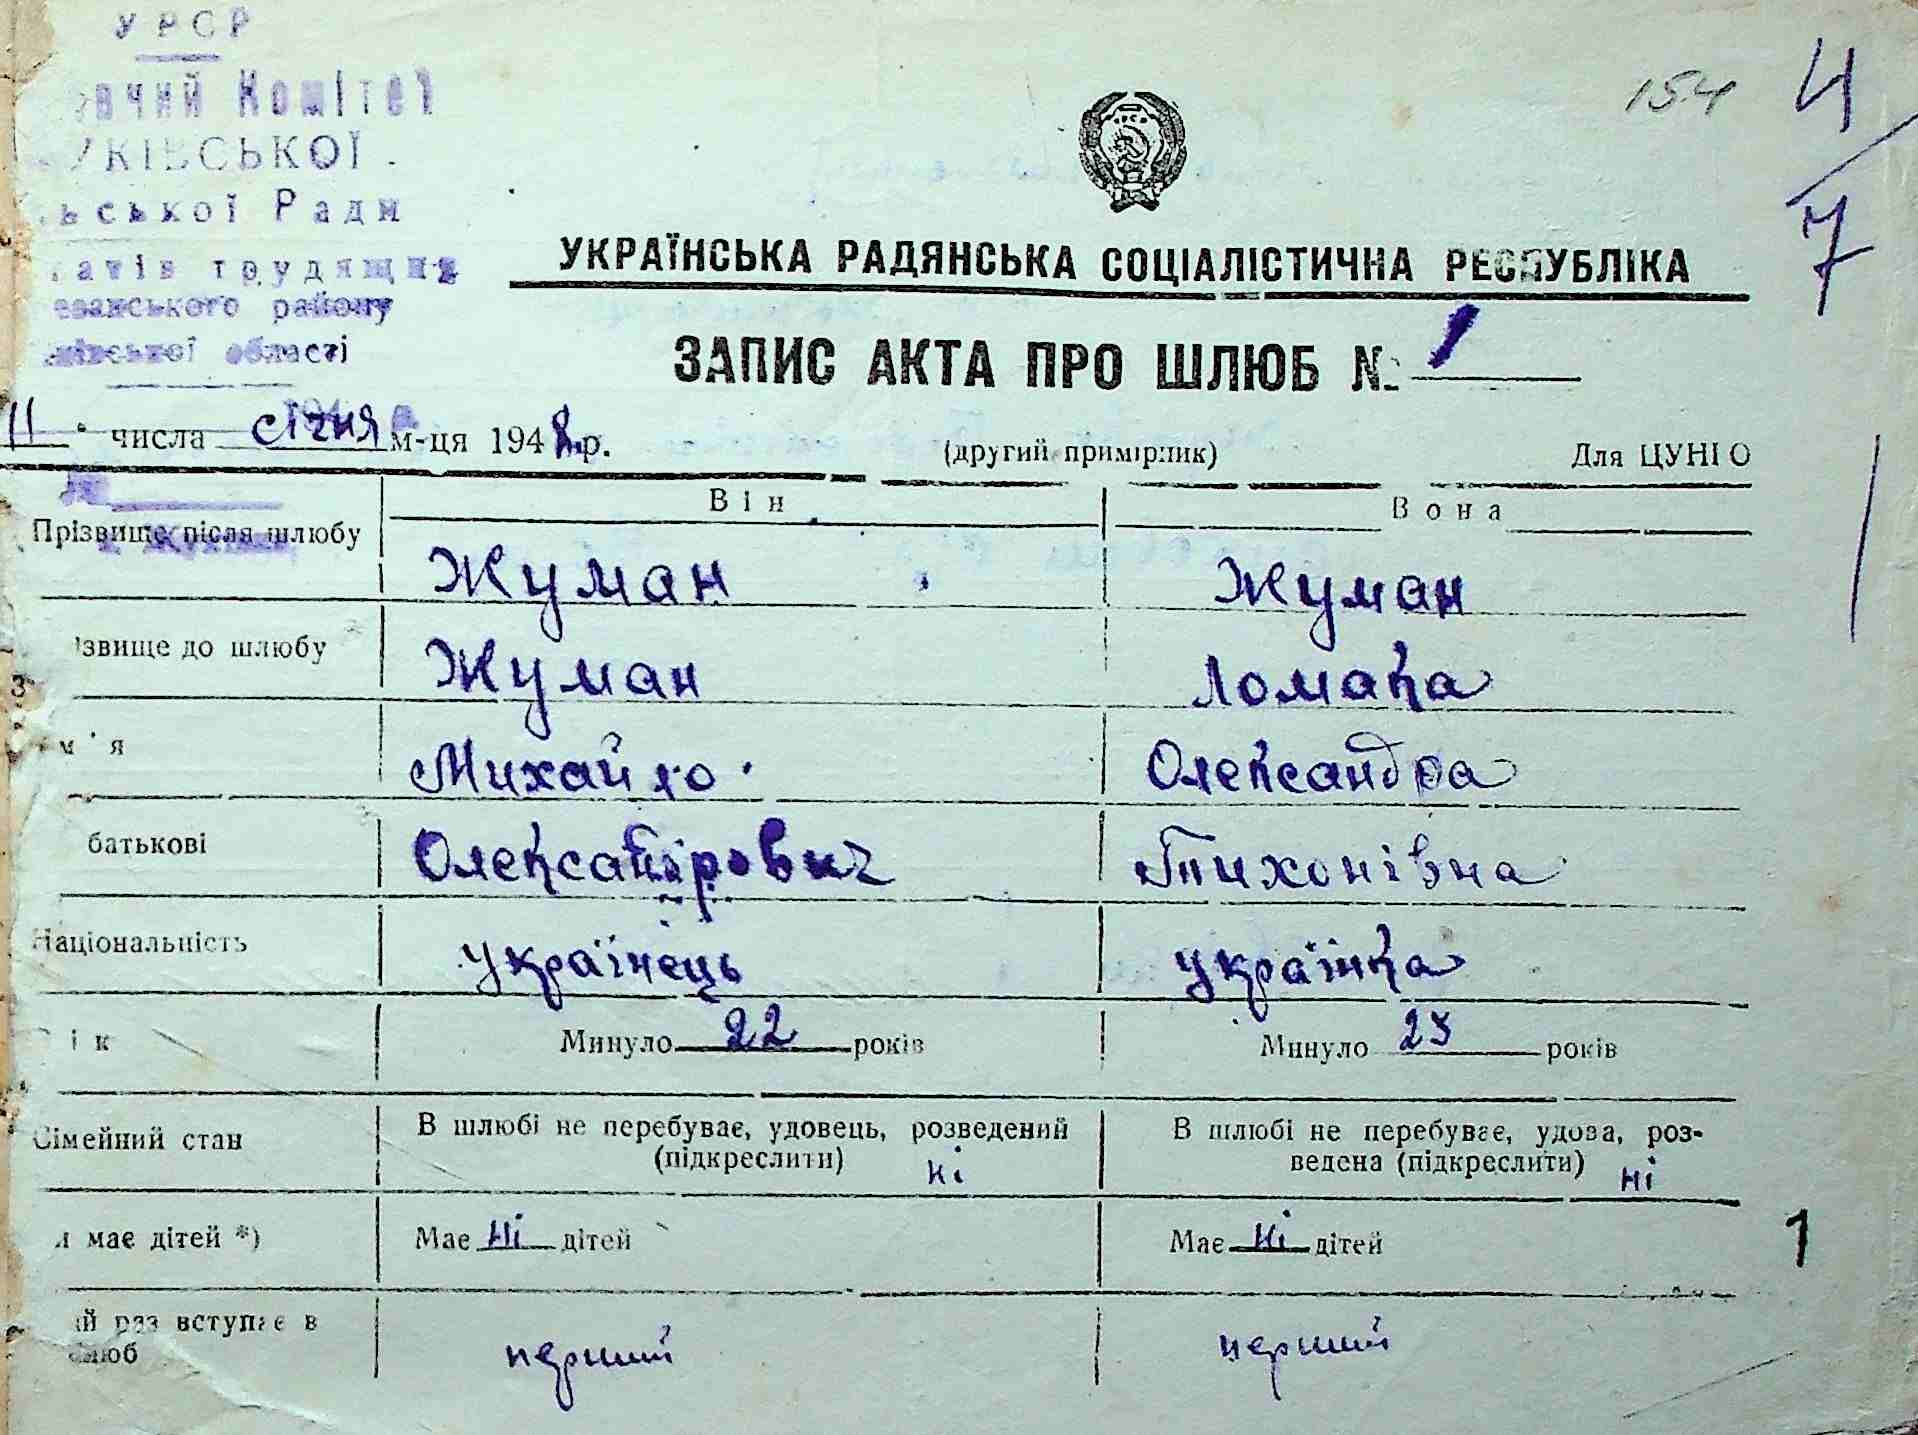 УРСР
Комітет
ської Ради
трудящих
району
області
154
4/7
УКРАЇНСЬКА РАДЯНСЬКА СОЦІАЛІСТИЧНА РЕСПУБЛІКА
ЗАПИС АКТА ПРО ШЛЮБ № 1
11 числа січня м-ця 1948 р.
(другий примірник)
Для ЦУНГО
Він
Вона
Прізвище після шлюбу
Жуман
Жуман
ізвище до шлюбу
Жуман
Ломака
м'я
Михайло
Олександра
батькові
Олександрович
Тихонівна
Національність
українець
українка
ік
Минуло 22 років
Минуло 23 років
Сімейний стан
В шлюбі не перебуває, удовець, розведений
(підкреслити) ні
В шлюбі не перебуває, удова, роз-
ведена (підкреслити) ні
и має дітей *)
Має ні дітей
Має ні дітей
1
ий раз вступає в
шлюб
перший
перший